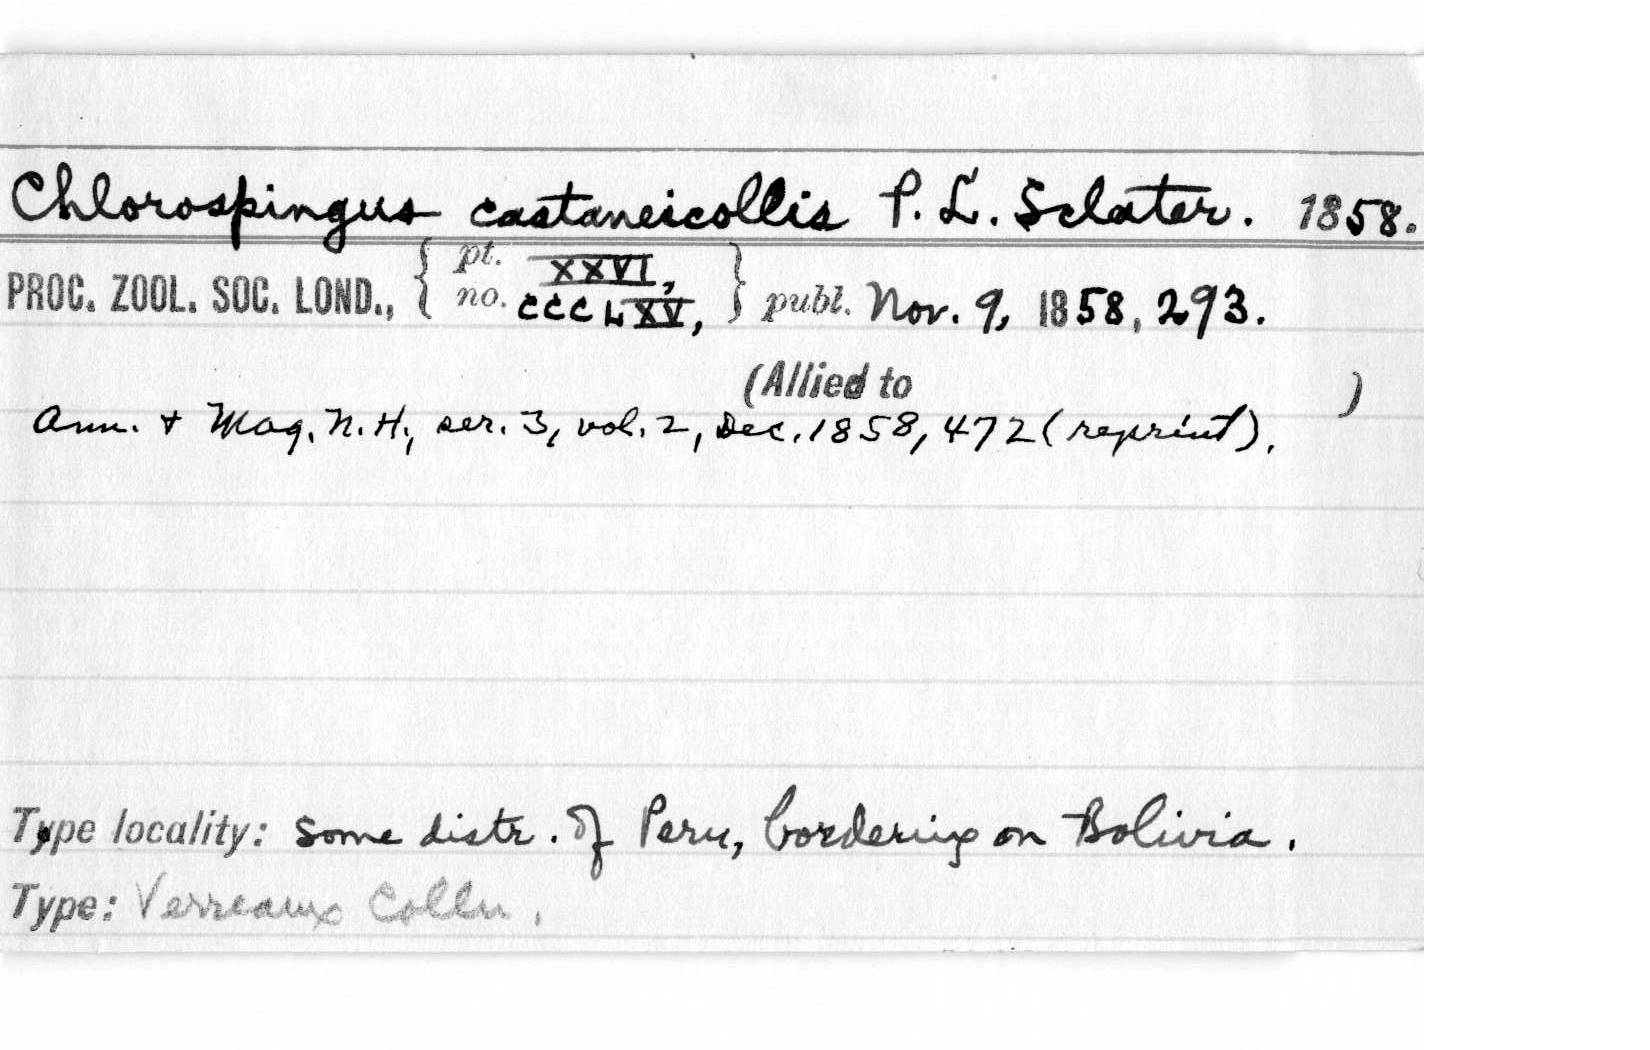 Chlorospingus castaneicollis P. L. Sclater. 1858.
PROC. ZOOL. SOC. LOND., { pt. XXVI, no. CCCLXV, } publ. Nov. 9, 1858, 293.
(Allied to )
Ann. + Mag. N. H., ser. 3, vol. 2, Dec. 1858, 472 (reprint).
Type locality: Some distr. of Peru, bordering on Bolivia.
Type: Verreaux Colln.